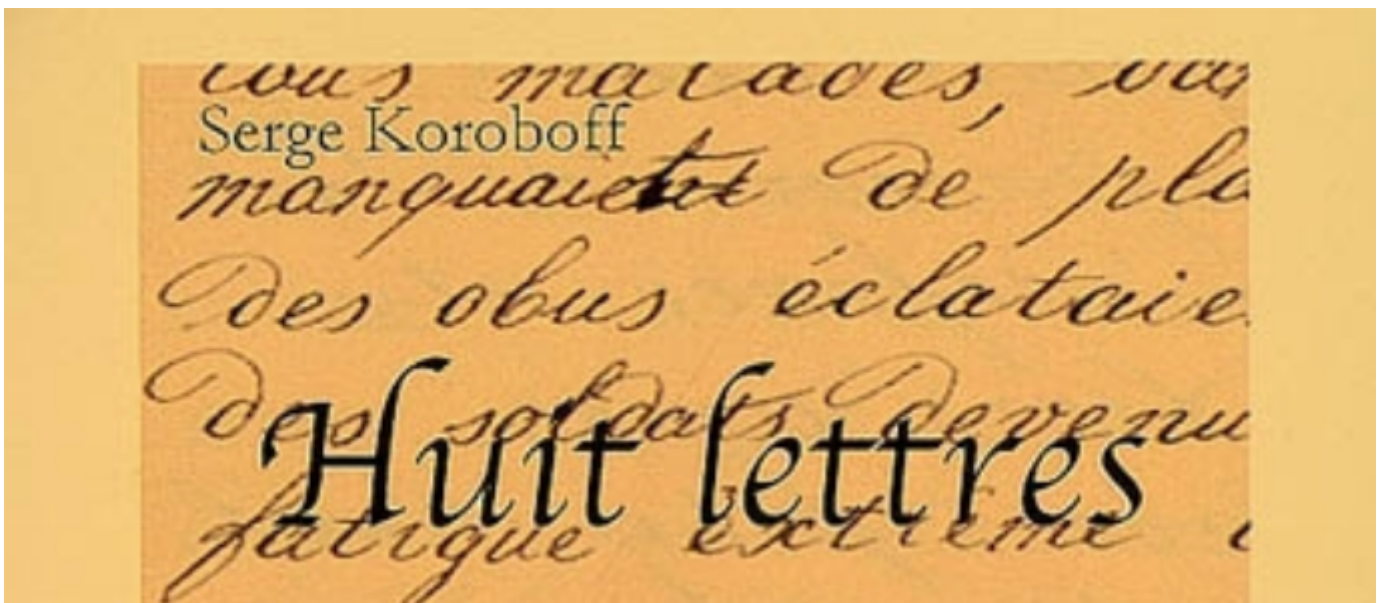 tous malades,
Serge Koroboff
manquaient de
des obus
des soldats
Huit lettres
fatigue extrême